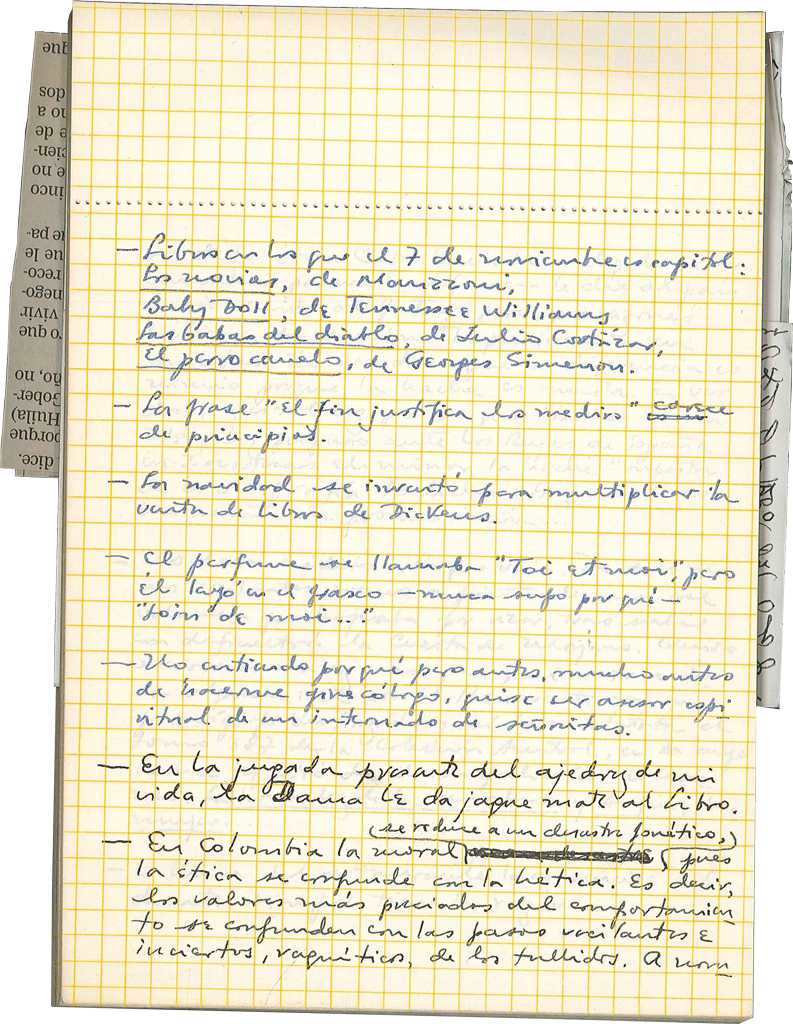 — Libros en los que el 7 de noviembre es capital:
Los novios, de Manzzoni,
Baby Doll, de Tennessee Williams
Las babas del diablo, de Julio Cortázar,
El perro canelo, de Georges Simenon.
— La frase "El fin justifica los medios" carece
de principios.
— La navidad se inventó para multiplicar la
venta de libros de Dickens.
— El perfume se llamaba "Toi et moi", pero
él leyó en el frasco —nunca supo por qué—
"loin de moi..."
— No entiendo por qué pero antes, mucho antes
de hacerme ginecólogo, quise ser asesor espi-
ritual de un internado de señoritas.
— En la jugada presente del ajedrez de mi
vida, la Dama le da jaque mate al Libro.
(se reduce a un desastre fonético,)
— En Colombia la moral pues
la ética se confunde con la hética. Es decir,
los valores más preciados del comportamien-
to se confunden con los pasos vacilantes e
inciertos, raquíticos, de los tullidos. A nom
que
dos
no a
e de
cien-
e no
inco
ue pa-
ue le
reco-
nego-
vivir
o que
ño, no
Gober-
Huila)
porque
dice.